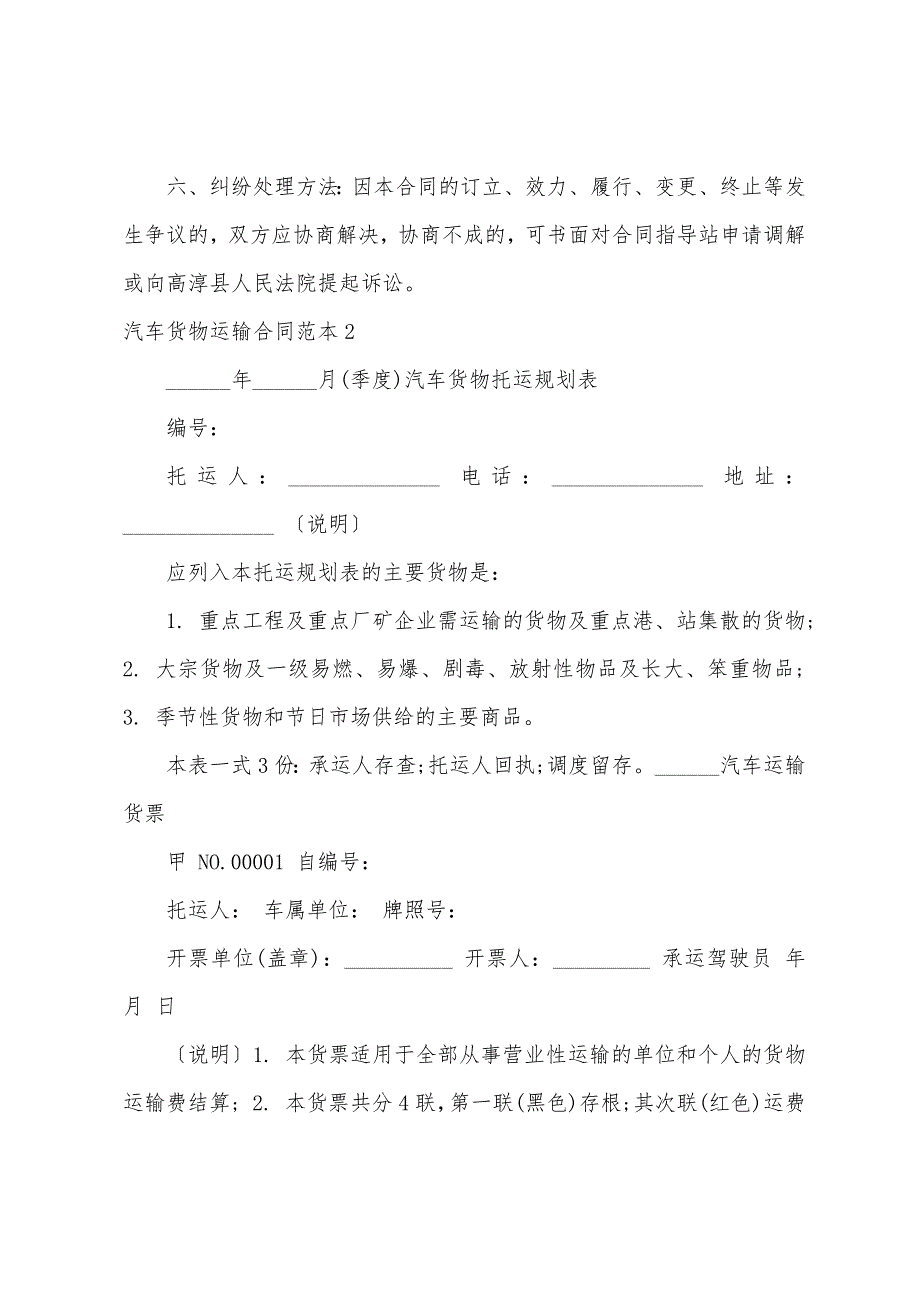 六、纠纷处理方法：因本合同的订立、效力、履行、变更、终止等发
生争议的，双方应协商解决，协商不成的，可书面对合同指导站申请调解
或向高淳县人民法院提起诉讼。
汽车货物运输合同范本 2
______年______月(季度)汽车货物托运规划表
编号：
托运人：______________ 电话：______________ 地址：
______________ 〔说明〕
应列入本托运规划表的主要货物是：
1. 重点工程及重点厂矿企业需运输的货物及重点港、站集散的货物;
2. 大宗货物及一级易燃、易爆、剧毒、放射性物品及长大、笨重物品;
3. 季节性货物和节日市场供给的主要商品。
本表一式 3 份：承运人存查;托运人回执;调度留存。______汽车运输
货票
甲 NO.00001 自编号：
托运人： 车属单位： 牌照号：
开票单位(盖章)：__________ 开票人：_________ 承运驾驶员 年
月 日
〔说明〕1. 本货票适用于全部从事营业性运输的单位和个人的货物
运输费结算; 2. 本货票共分 4 联，第一联(黑色)存根;其次联(红色)运费